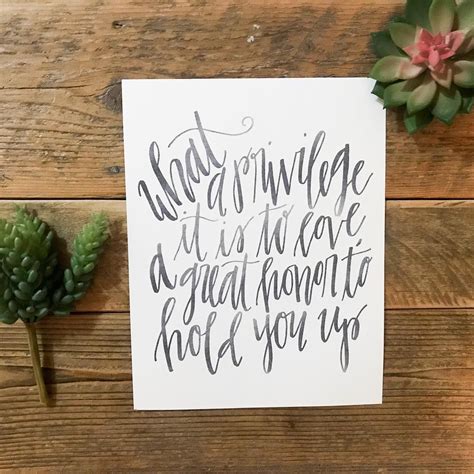 What
a privilege
it is to love,
a great honor to
hold you up